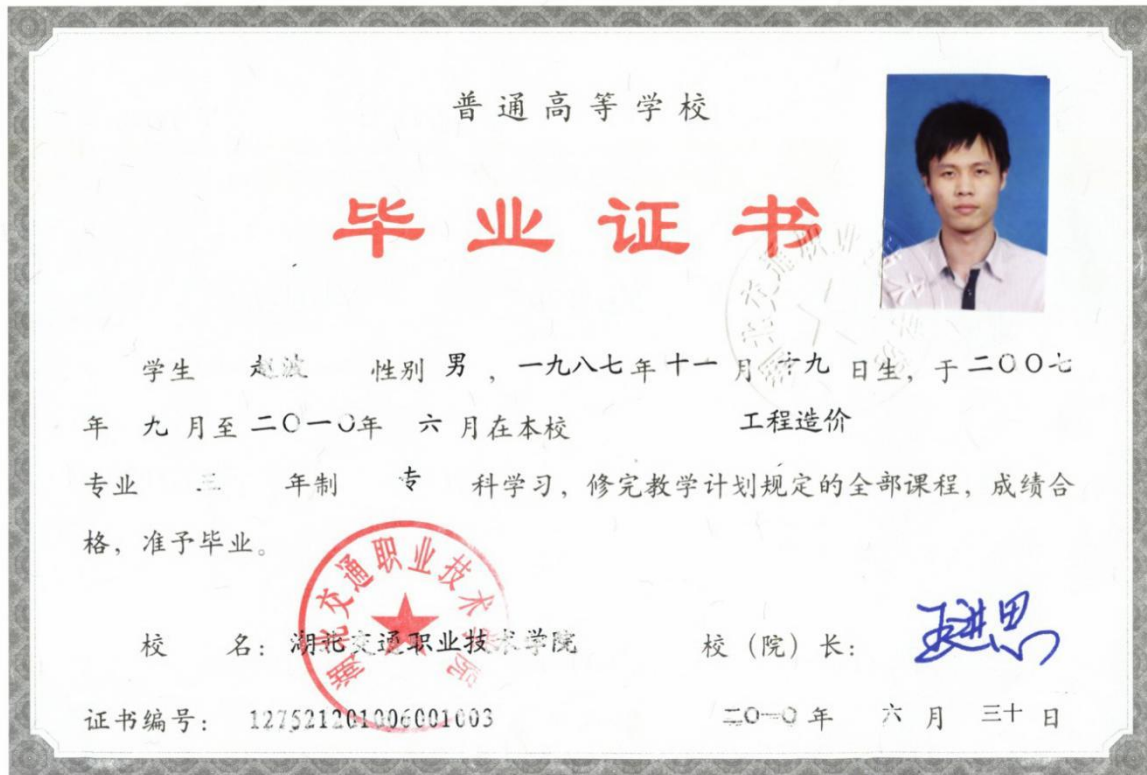 普通高等学校
毕业证书
学生 赵波 性别 男 ，一九八七年十一月 十九 日生，于二〇〇七
年 九 月至二〇一〇年 六 月在本校 工程造价
专业 三 年制 专 科学习，修完教学计划规定的全部课程，成绩合
格，准予毕业。
湖北交通职业技术学院
校 名：湖北交通职业技术学院 校（院）长：
证书编号： 127521201006001003 二〇一〇年 六 月 三十 日